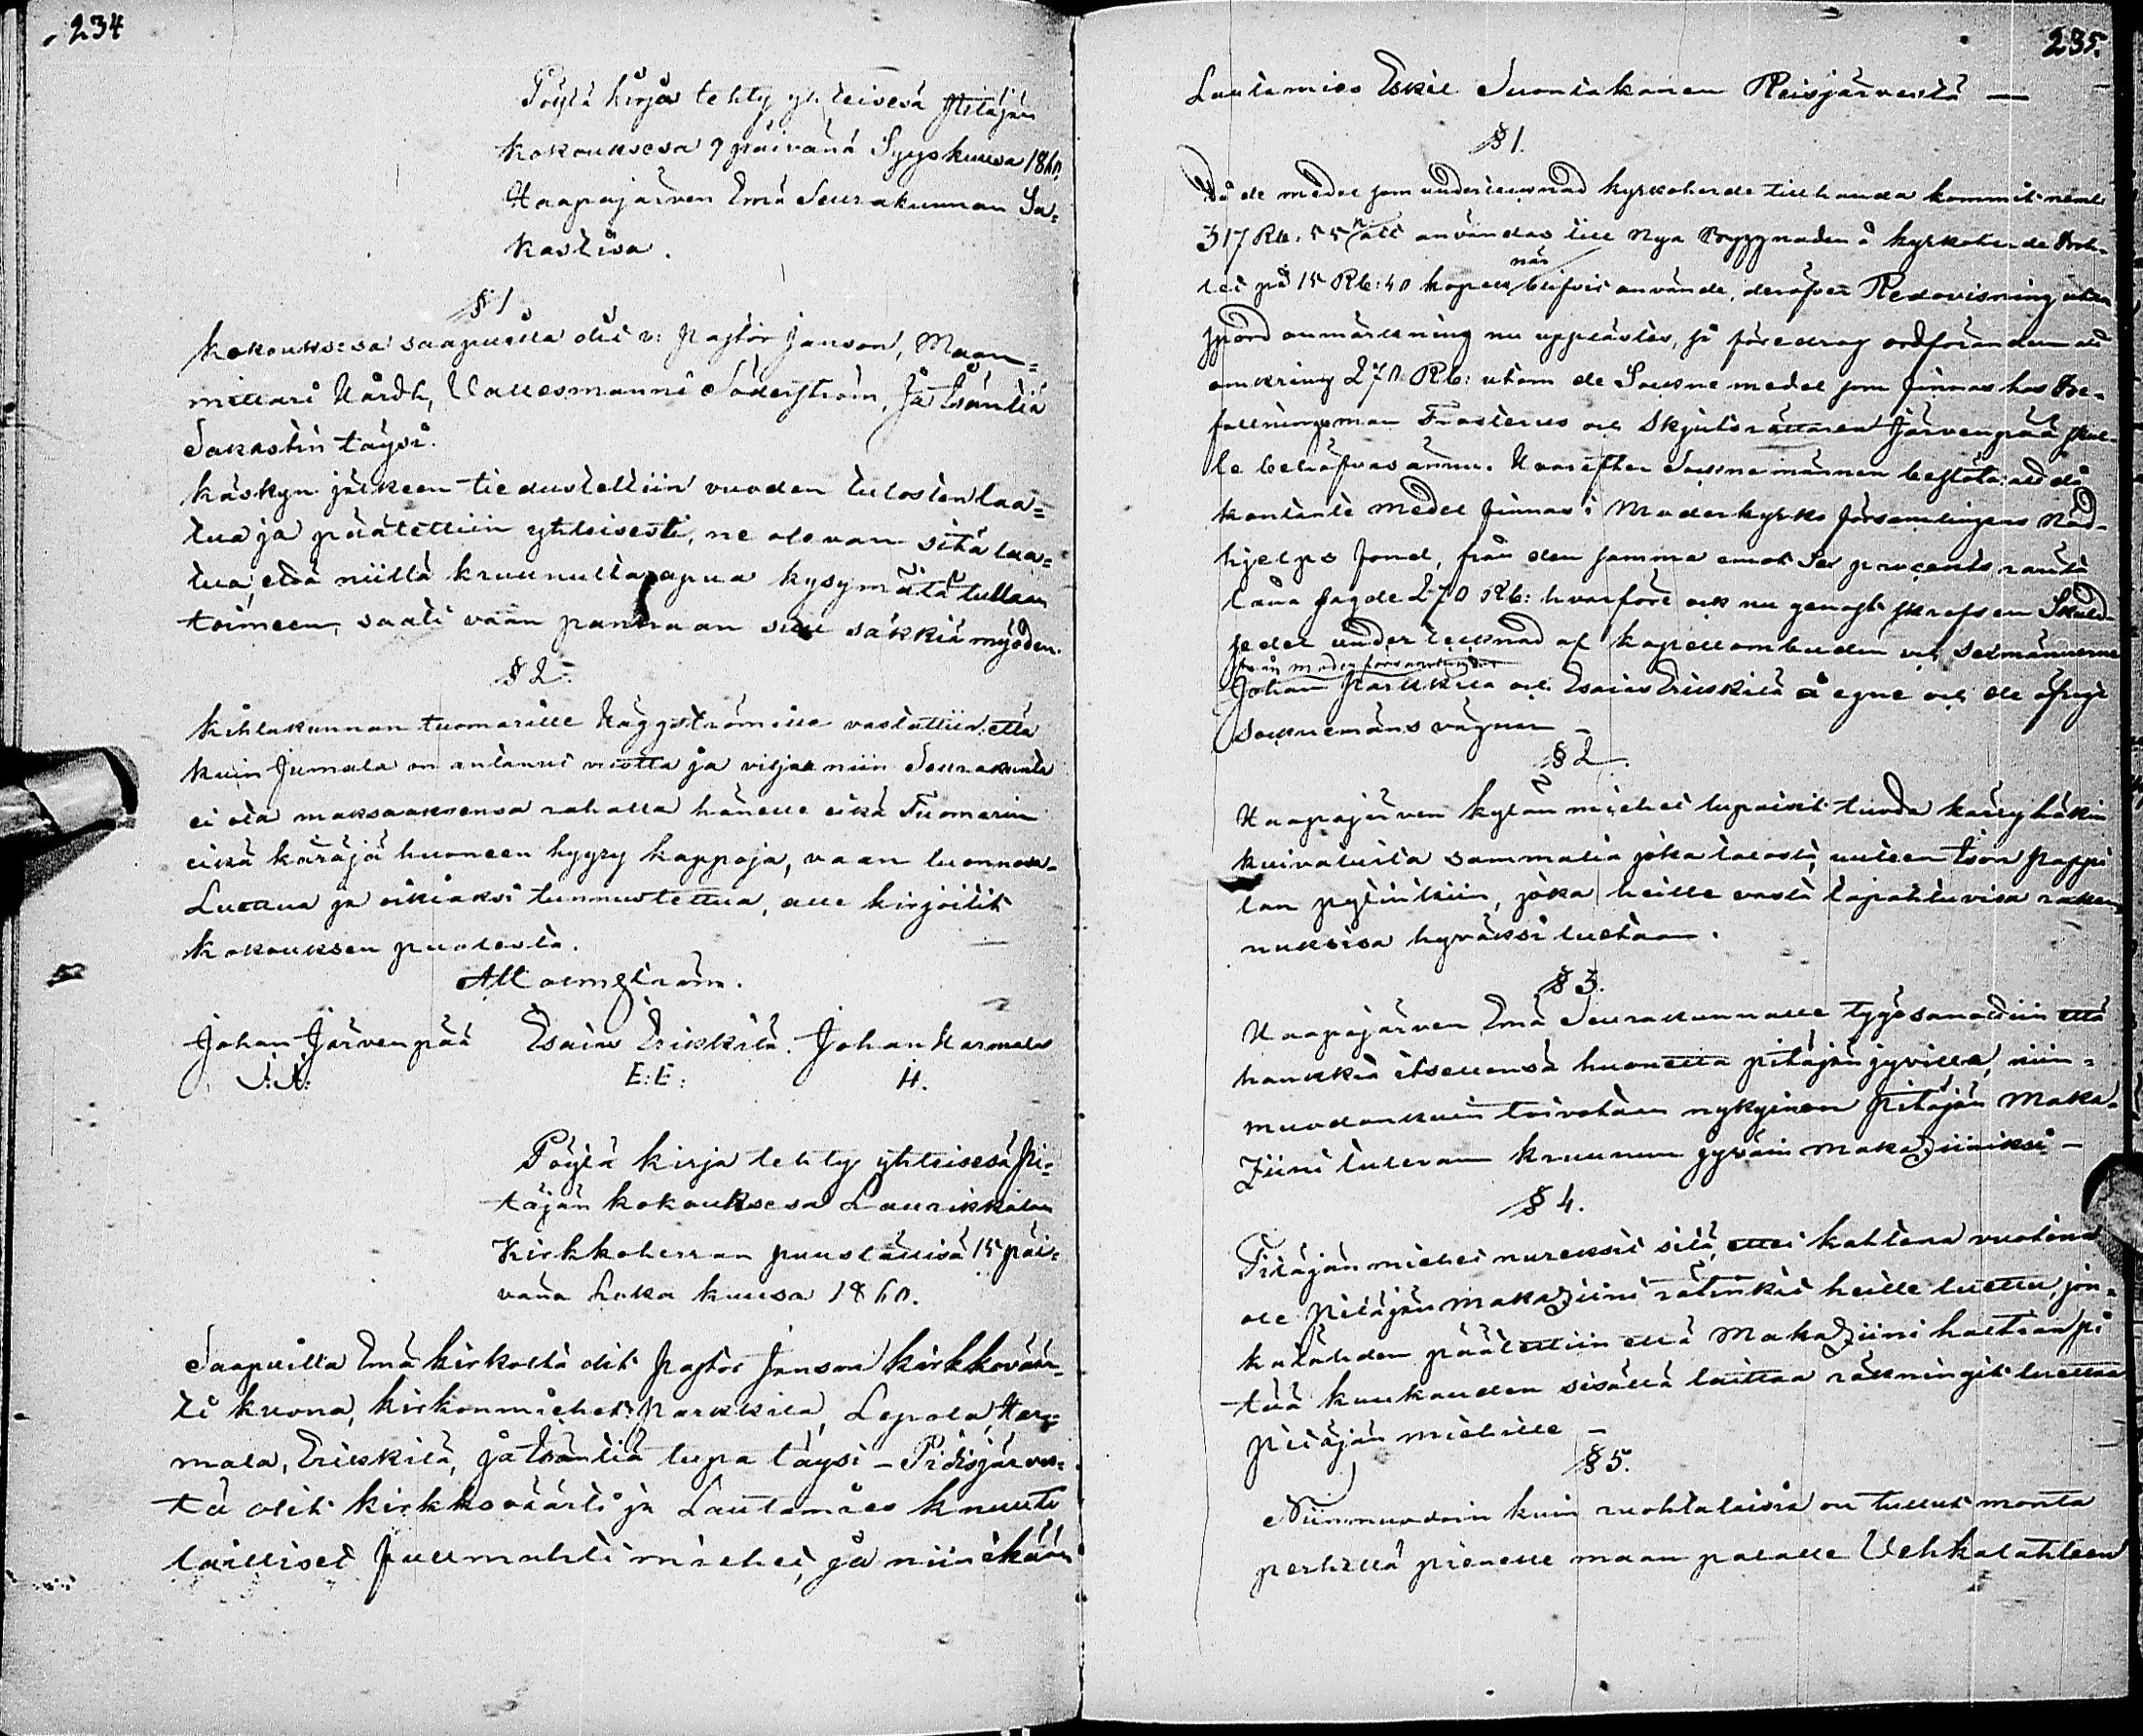 234
Pöytä kirja tehty yhteisesä Pitäjän
kokouksesa 9 päivänä Syyskuusa 1860.
Haapajärven Emä Seurakunnan Sa=
kastisa.
§ 1
Kokouksesa saapuilla oli v: Pastor Janson, Maan=
mittari Hårdh, Vallesmanni Söderström, ja Isäntiä
Sakastin täysi.
Käskyn jälkeen tiedusteltiin vuoden tulosten laa=
tua ja päätettiin yhteisesti, ne olevan sitä laa=
tua, että niillä kruunulta apua kysymätä tullaan
toimeen, saati vaan pannaan suu säkkiä myöden.
§ 2.
Kihlakunnan tuomarille Häggströmille vastattiin, että
kuin Jumala on antanut vuotta ja viljaa niin Seurakunta
ei ota maksaaksensa rahalla hänelle eikä Tuomarin
eikä käräjä huoneen hyyry kappoja, vaan luonnosa.
Luettua ja oikiaksi tunnustettua, alle kirjoitit
kokouksen puolesta.
A Malmström.
Johan Järvenpää Esaias Erikkilä. Johan Harmala
E: E: H.
Pöytä kirja tehty yhteisesä Pi=
täjän kokouksesa Laurikkalan
Kirkkoherran puuställisä 15 päi=
vänä Loka kuusa 1860.
Saapuilla Emä kirkolta olit Pastor Janson kirkkovär=
ti Kuona, kirkonmiehet: Parkkila, Lepola, Har=
mala, Erikkilä, ja Isäntiä tupa täysi – Pidisjärves=
tä olit kirkkoväärti ja Lautamies Knuuti
lailliset fullmahti miehet, ja niin ikään
235.
Lautamies Eskil Suontakanen Reisjärvestä —
§ 1.
Då de medel som undertecknad kyrkoherde tillhanda kommit neml
317 Rb. 55 att användas till nya byggnaden å kyrkoherde Bol-
let på 15 Rb: 40 kopek när blifvit använde, deröfver Redovisning utan
spord anmärkning nu upplästes, så föredrog ordföranden att
omkring 270 Rb: utom de Sockne medel som finnas hos Be-
fallningsman Frosterus och Skjutsrättaren Järvenpää skul-
le behöfvas ännu. Hvarefter Sockne männen beslöto att då
kontante medel finnas i Moderkyrko församlingens Nöd-
hjelps fond, från den samma emot Sex procents ränta
låna sagde 270 Rb: hvarföre ock nu genast skrefs en Skuld-
sedel undertecknad af kapellombuden och Sexmännerne
från moderförsamlingen
Johan Parkkila och Esaias Erikkilä å egne och de öfrige
Sockemäns vägnar –
§ 2.
Haapajärven kylän miehet lupaisit tuoda kärry häkin
kuivatuita sammalia joka talosta, uuteen Ison Pappi
lan pytinkiin, joka heille vasta tapahtuvisa raken
nuksisa hyväksi luetaan.
§ 3.
Haapajärven Emä Seurakunnalle tygösanottiin että
hankkia itsellensä huonetta pitäjän jyville, niin=
muodonkuin toivotaan nykyinen Pitäjän Maka-
ziini tulevan kruunun jyväin makaziiniksi –
§ 4.
Pitäjän miehet nureksit sitä, ettei kahtena vuotena
ole Pitäjän makaziini rätinkiä heille luettu, jon=
ka tähden päätettiin että Makaziini haltian pi
tää kuukauden sisällä laittaa räkningit luettaa
Pitäjän miehille –
§ 5.
Niinmuodoin kuin ruohtalaisia on tullut monta
perhettä pienelle maan palalle Vehkalahteen